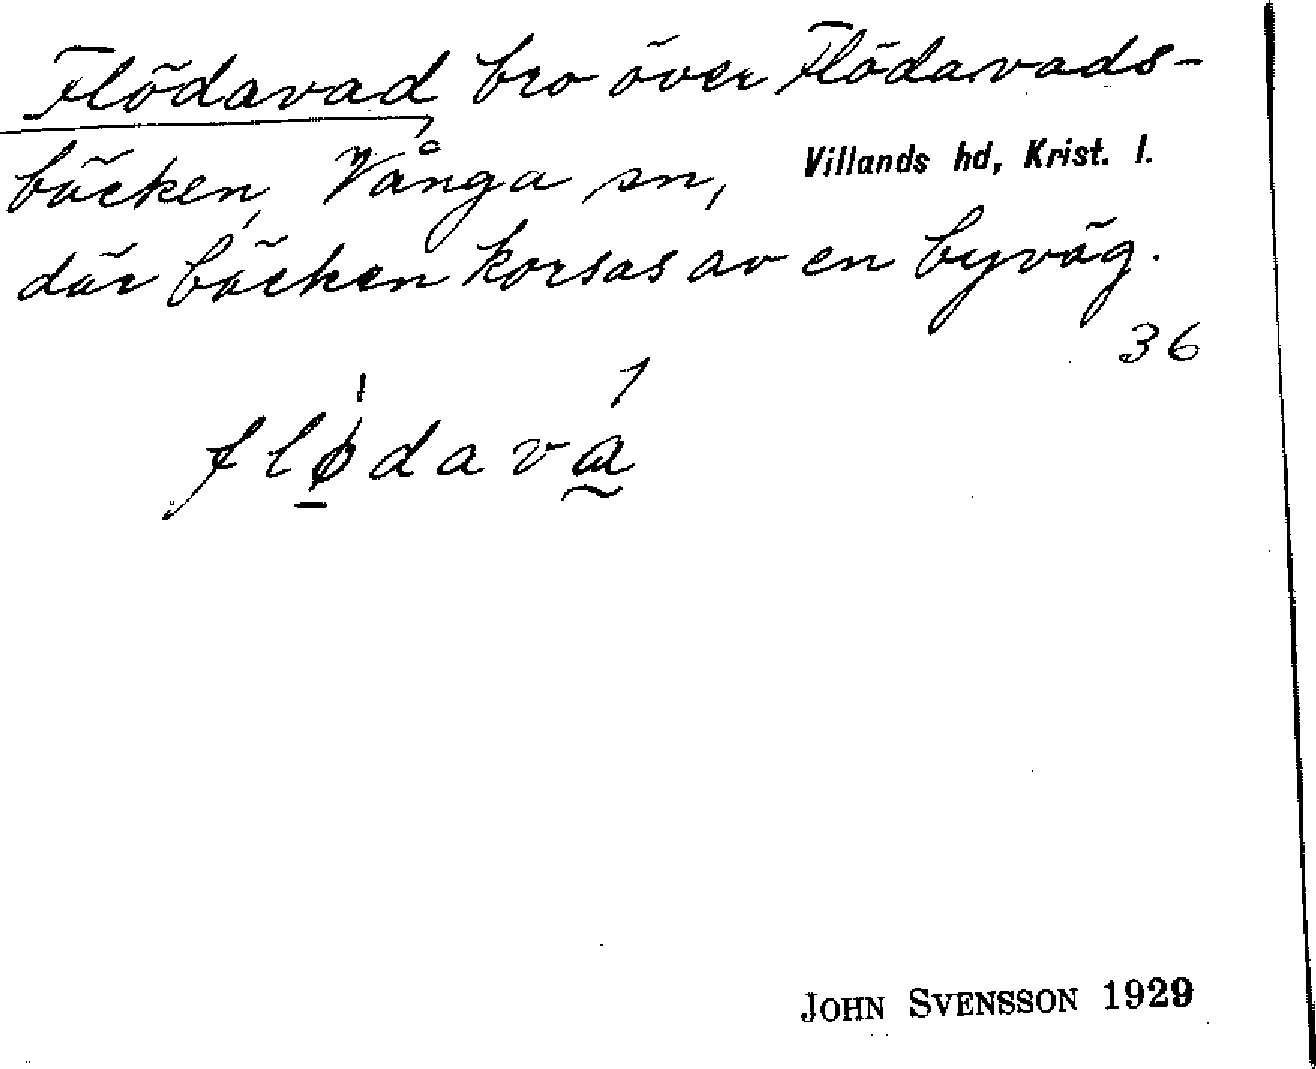 Flödavad, bro över Flödavads-
bäcken, Vånga sn, Villands hd, Krist. l.
där bäcken korsas av en byväg.
36
flødava
JOHN SVENSSON 1929